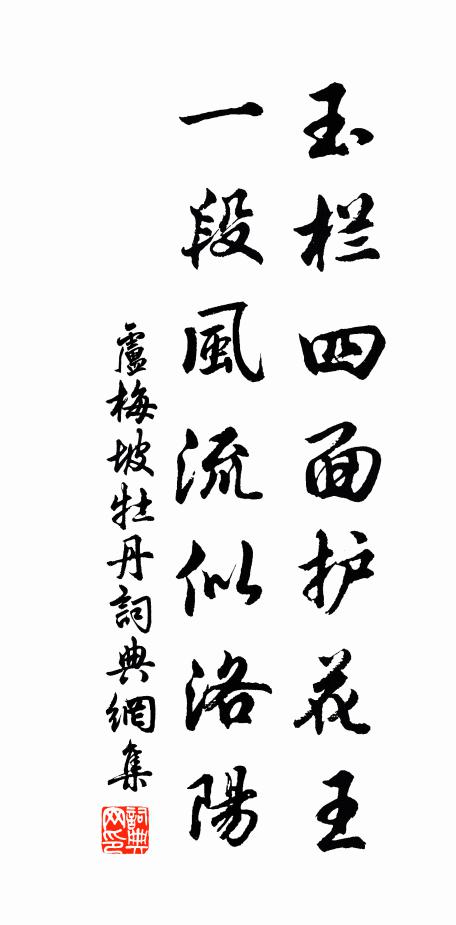 玉栏四面护花王
一段風流似洛陽
盧梅坡牡丹詞典網集
詞典网印